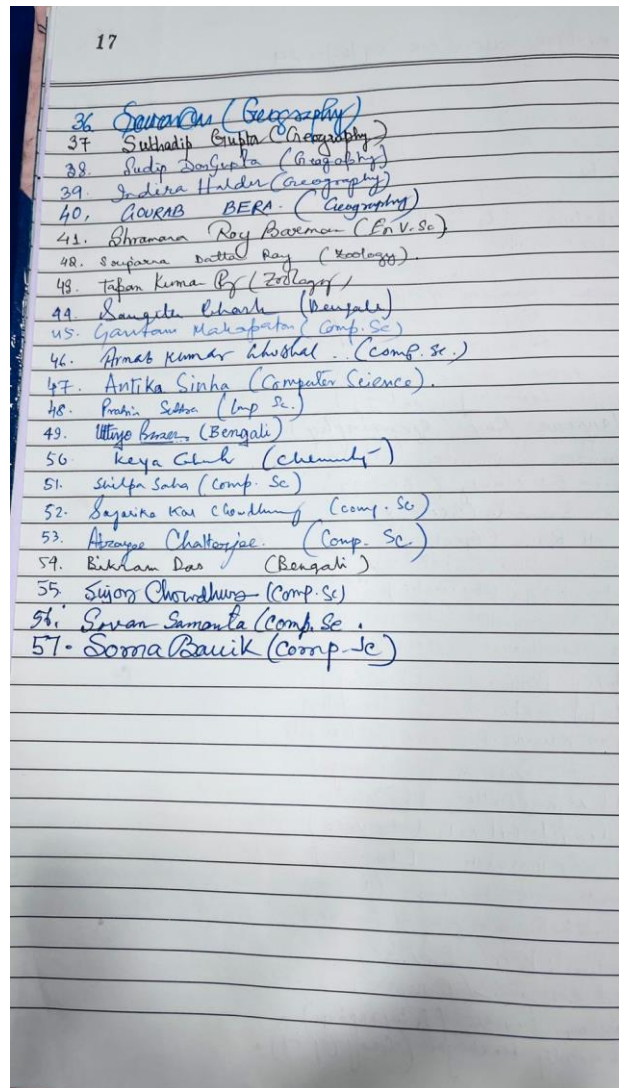 17
36. (Geography)
37 Subhadip Gupta (Geography)
38. Sudip DasGupta (Geography)
39. Indira Halder (Geography)
40, GOURAB BERA. (Geography)
41. Shramana Roy Barman (EnV.Sc).
42. Souparna Datta Ray (Zoology).
43. Tapan Kumar (Zoology)
44. Sangita Ghosh (Bengali)
45. Gautam Mahapatra (Comp. Sc)
46. Arnab Kumar Ghoshal . (Comp. Sc.)
47. Antika Sinha (Computer Science).
48. (Comp Sc.)
49. (Bengali)
50 Keya Ghosh (Chemistry)
51. Shilpa Saha (Comp. Sc)
52. Sagarika Kar Chowdhury (Comp. Sc)
53. Chatterjee. (Comp. Sc.)
54. Bikram Das (Bengali)
55. Sujoy Chowdhury (Comp.Sc)
56. Sovan Samanta (Comp. Sc.
57. Soma Banik (Comp-Sc)